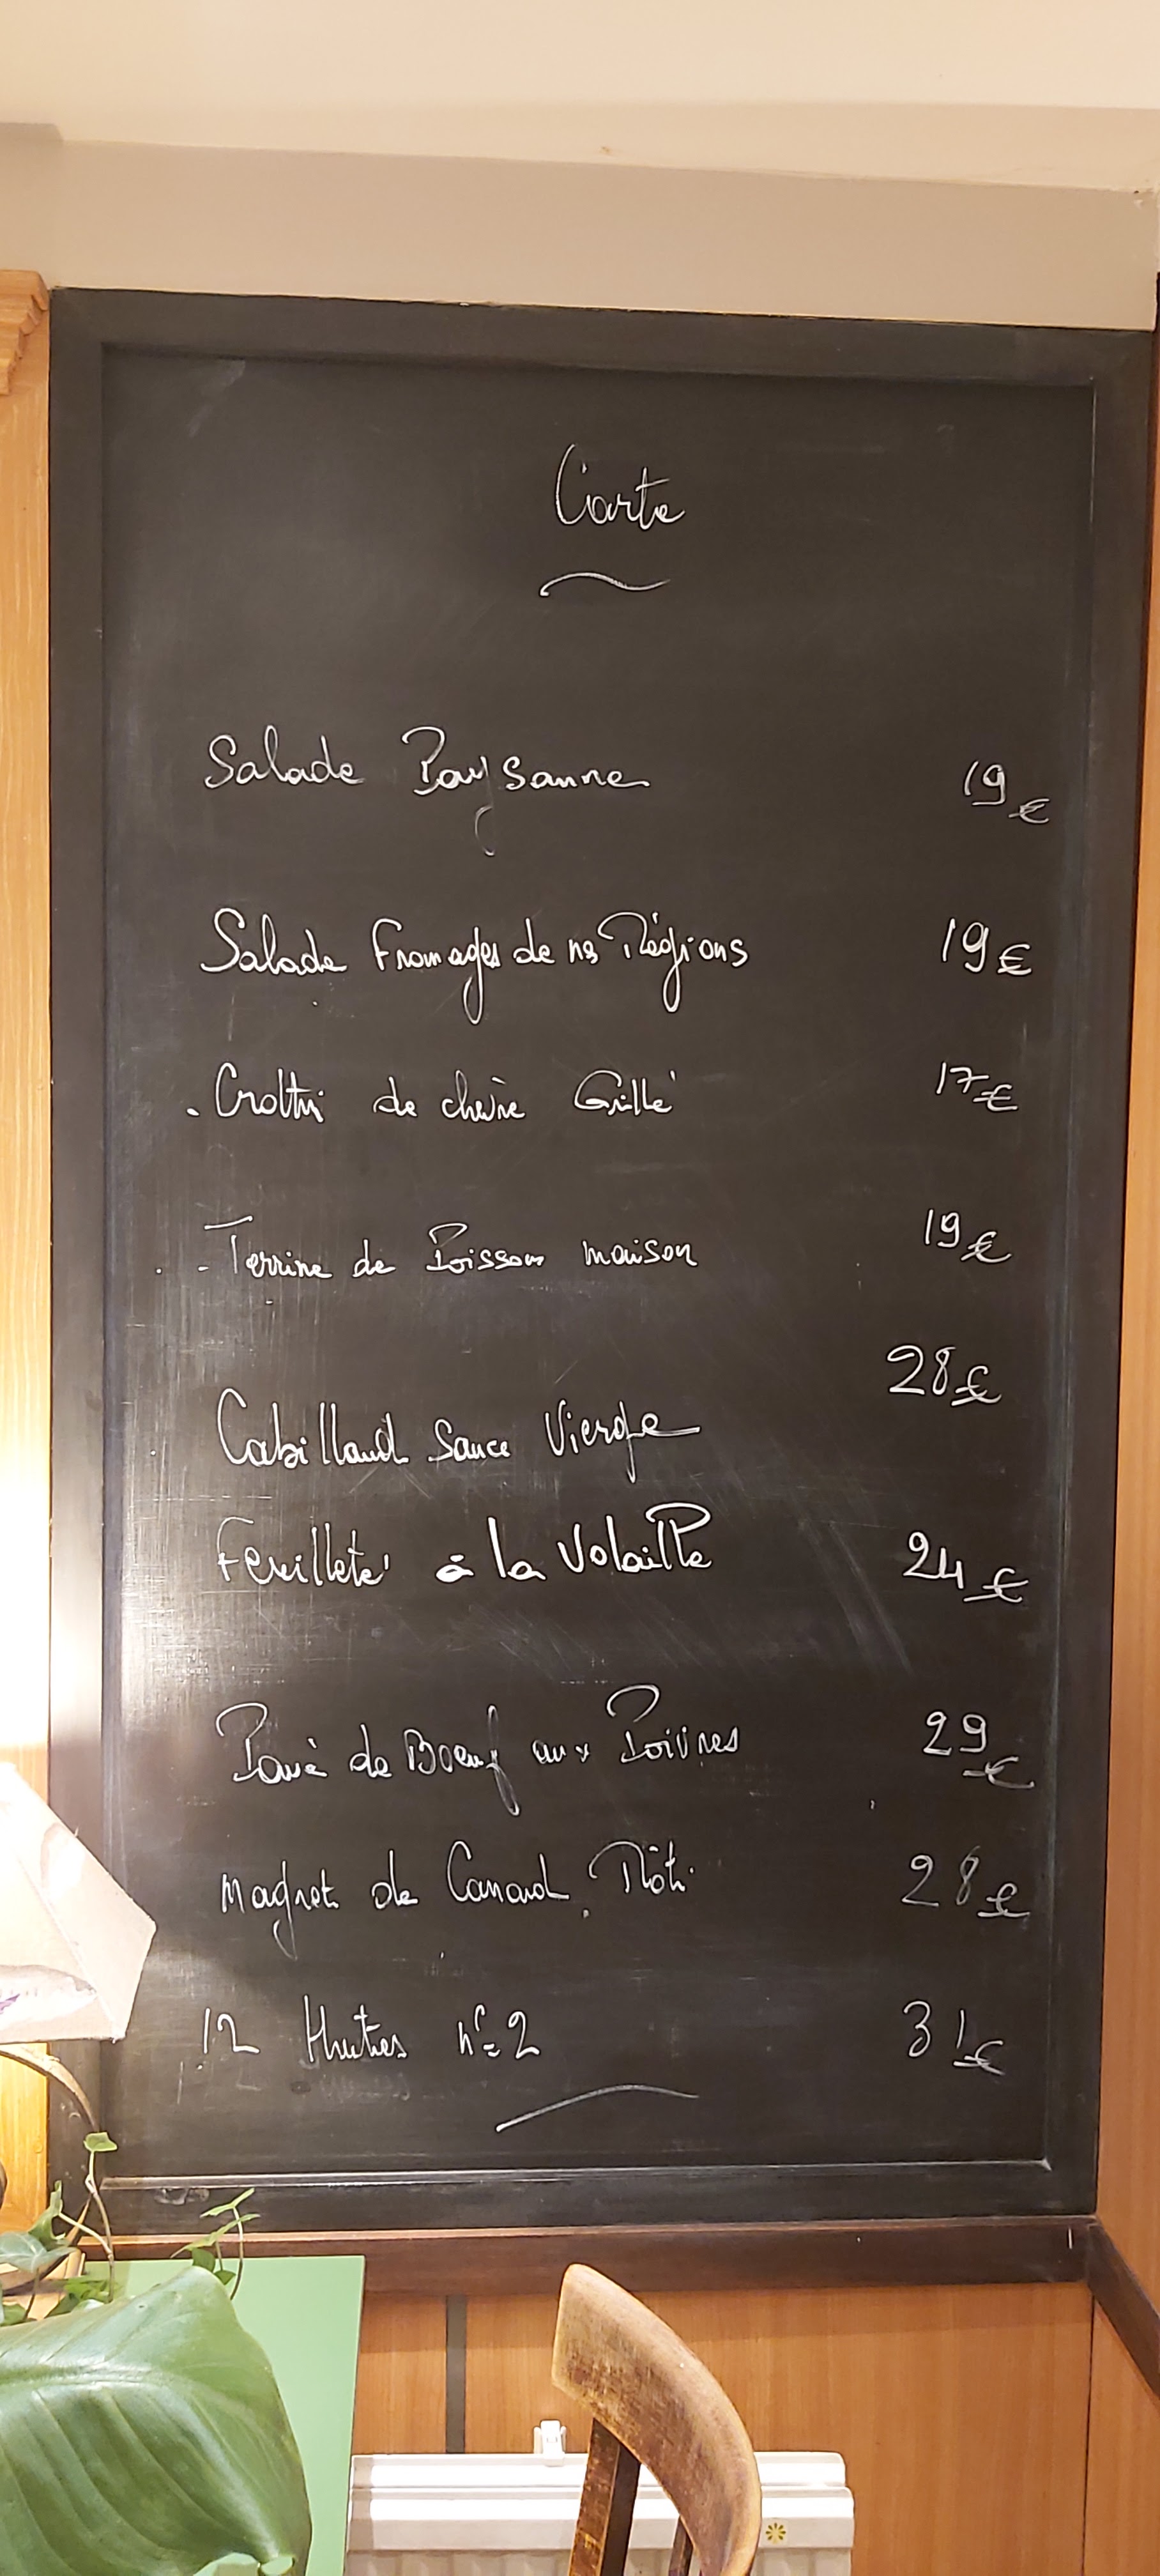 Carte
Salade Paysanne 19€
Salade Fromages de nos Régions 19€
. Crottin de chèvre Grillé 17€
- Terrine de Poisson maison 19€
Cabillaud Sauce Vierge 28€
Feuilleté à la Volaille 24€
Pavé de Boeuf aux Poivres 29€
Magret de Canard Rôti 28€
12 Huitres n°2 31€